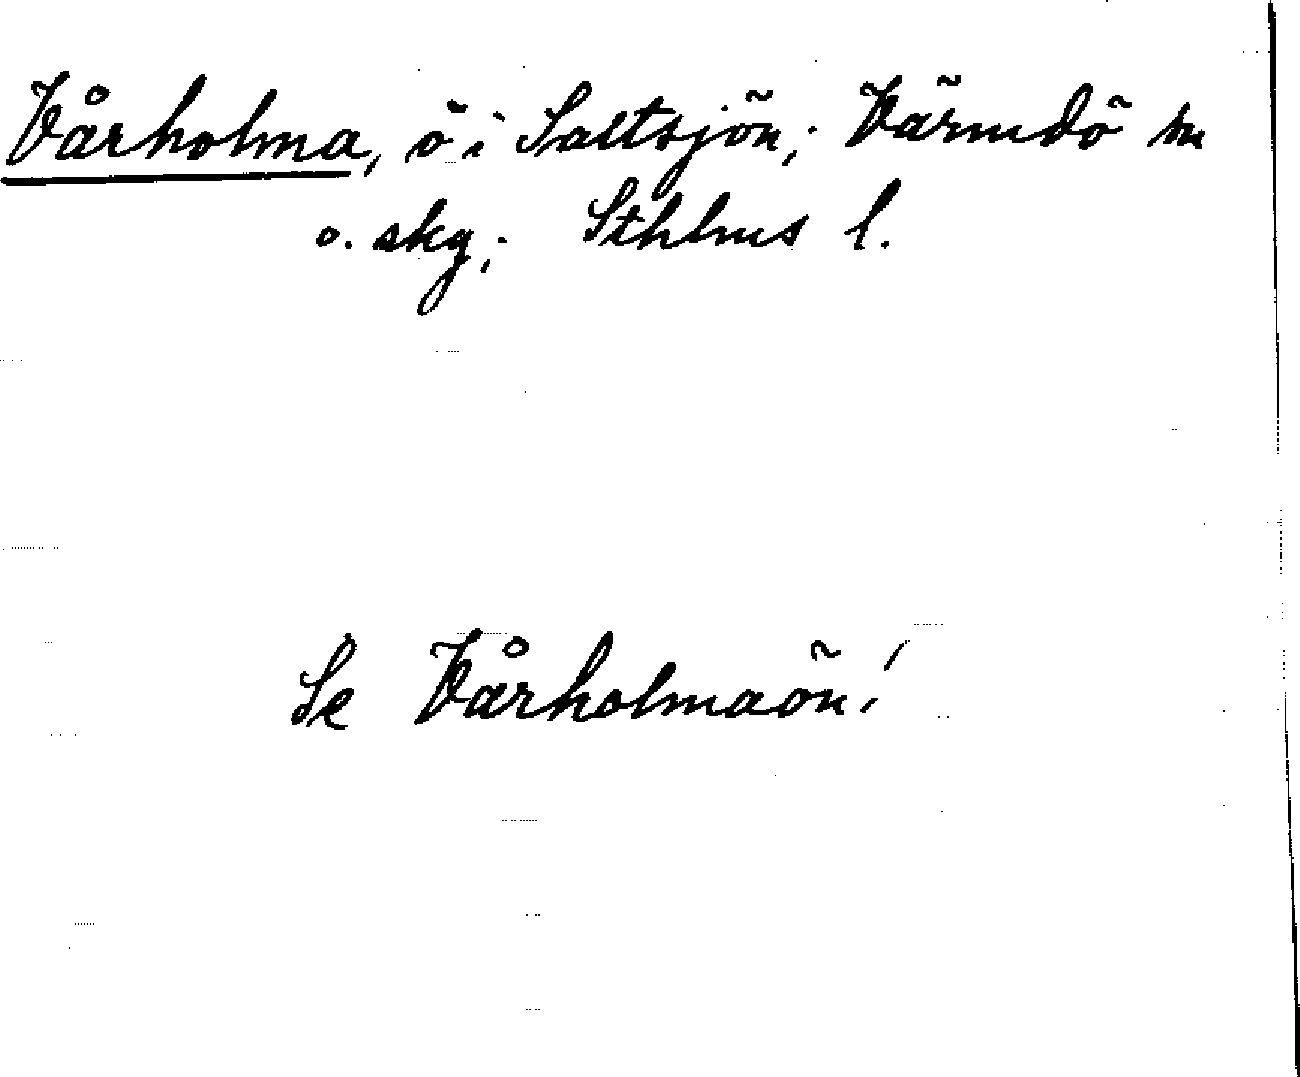 Vårholma, ö i Saltsjön; Värmdö sn
o. skg; Sthlms l.
Se Vårholmaön!